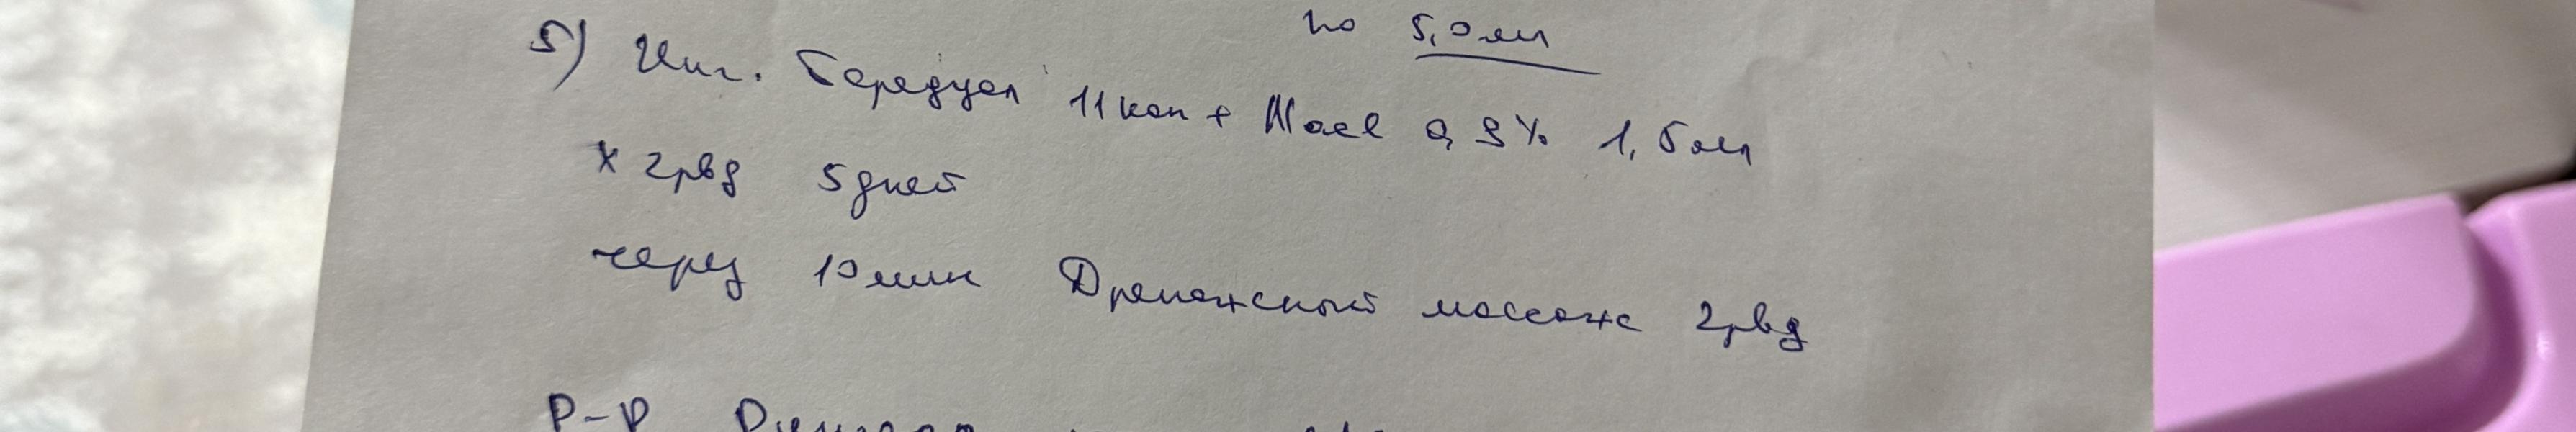 по 5,0 мл
5) Инг. Беродуал 11 кап + NaCl 0,9% 1,5 мл
х 2 р в д 5 дней
через 10 мин Дренажный массаж 2 р в д
Р-р